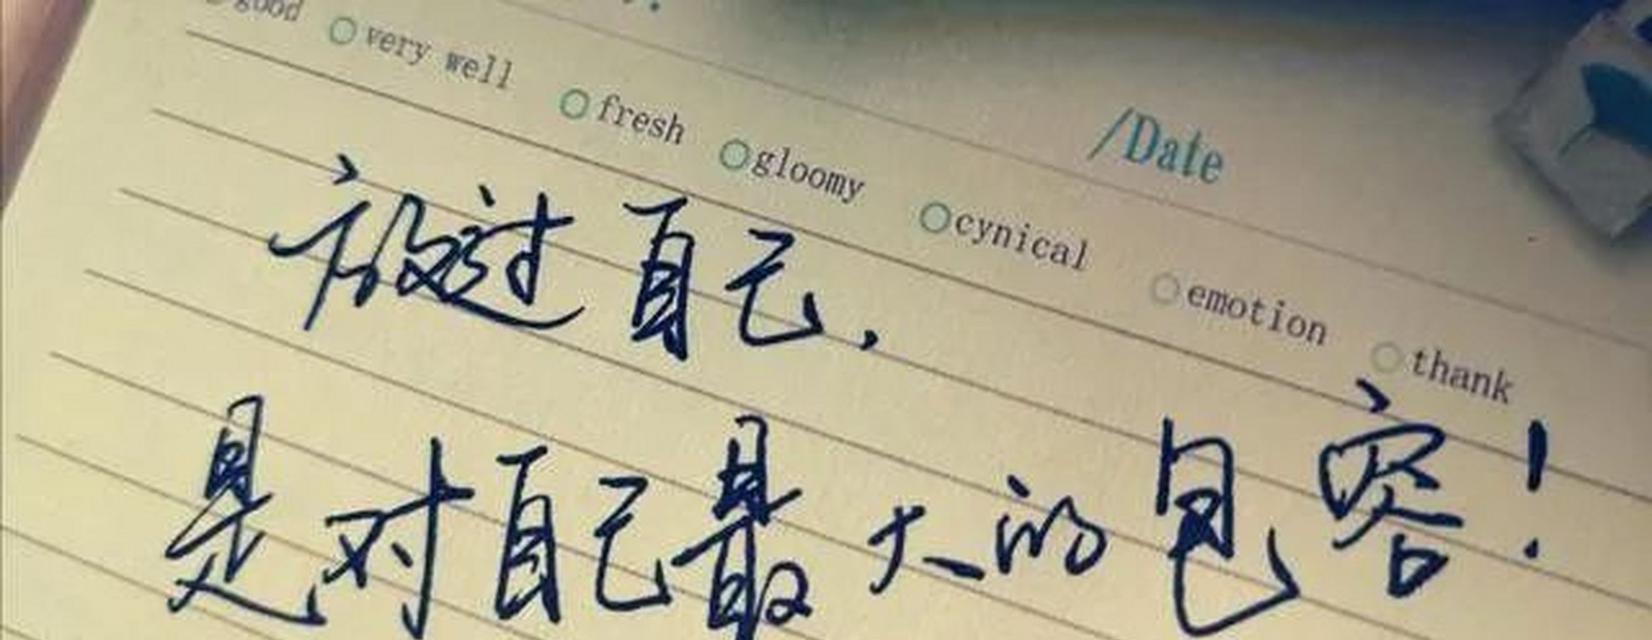 good ○ very well ○ fresh ○ gloomy ○ cynical ○ emotion ○ thank
/Date
放过自己,
是对自己最大的包容!